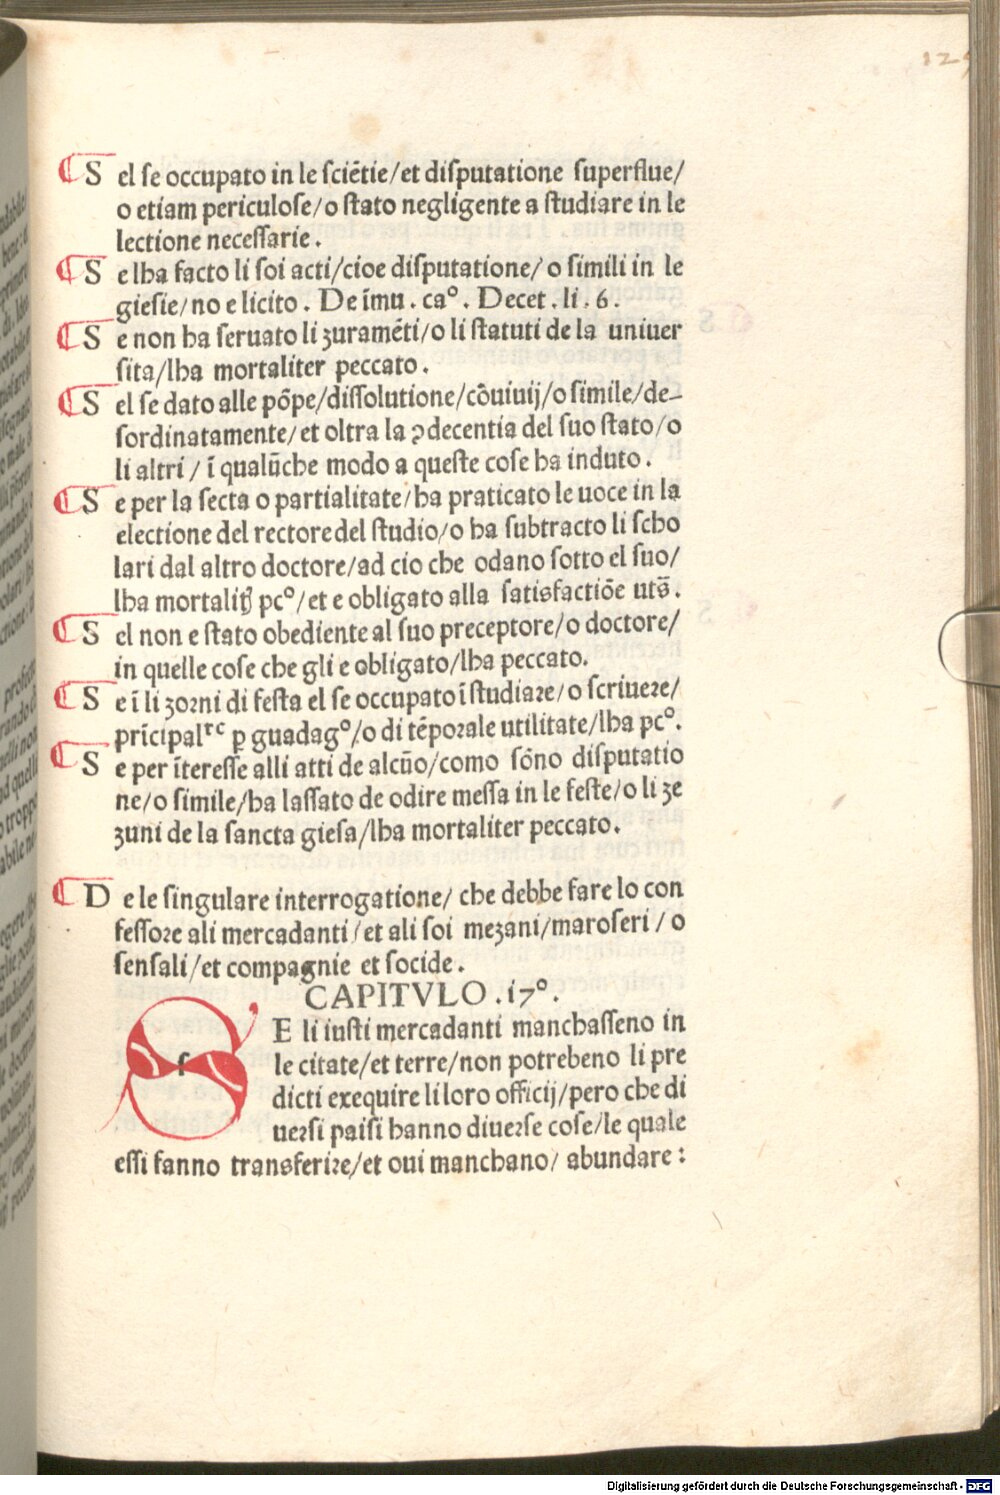 125
¶ S el se occupato in le sciẽtie/et disputatione superflue/
o etiam periculose/o stato negligente a studiare in le
lectione necessarie.
¶ S e lha facto li soi acti/cioe disputatione/o simili in le
giesie/no e licito. De ĩmu. caº. Decet. li. 6.
¶ S e non ha seruato li zuramẽti/o li statuti de la uniuer
sita/lha mortaliter peccato.
¶ S el se dato alle põpe/dissolutione/cõuiuij/o simile/de-
sordinatamente/et oltra la ꝯdecentia del suo stato/o
li altri/ĩ qualũche modo a queste cose ha induto.
¶ S e per la secta o partialitate/ha praticato le uoce in la
electione del rectore del studio/o ha subtracto li scho
lari dal altro doctore/ad cio che odano sotto el suo/
lha mortalit̃ pcº/et e obligato alla satisfactiõe uts̃.
¶ S el non e stato obediente al suo preceptore/o doctore/
in quelle cose che gli e obligato/lha peccato.
¶ S e ĩ li zorni di festa el se occupato ĩ studiare/o scriuere/
prĩcipalʳᵉᶜ ꝑ guadagº/o di tẽporale utilitate/lha pcº.
¶ S e per ĩteresse alli atti de alcũo/como sõno disputatio
ne/o simile/ha lassato de odire messa in le feste/o li ze
zuni de la sancta giesa/lha mortaliter peccato.
¶ D e le singulare interrogatione/ che debbe fare lo con
fessore ali mercadanti/et ali soi mezani/maroseri/o
sensali/et compagnie et socide.
CAPITVLO .17º.
S E li iusti mercadanti manchasseno in
le citate/et terre/non potrebeno li pre
dicti exequire li loro officij/pero che di
uersi paisi hanno diuerse cose/le quale
essi fanno transferire/et oui manchano/ abundare:
Digitalisierung gefördert durch die Deutsche Forschungsgemeinschaft - DFG